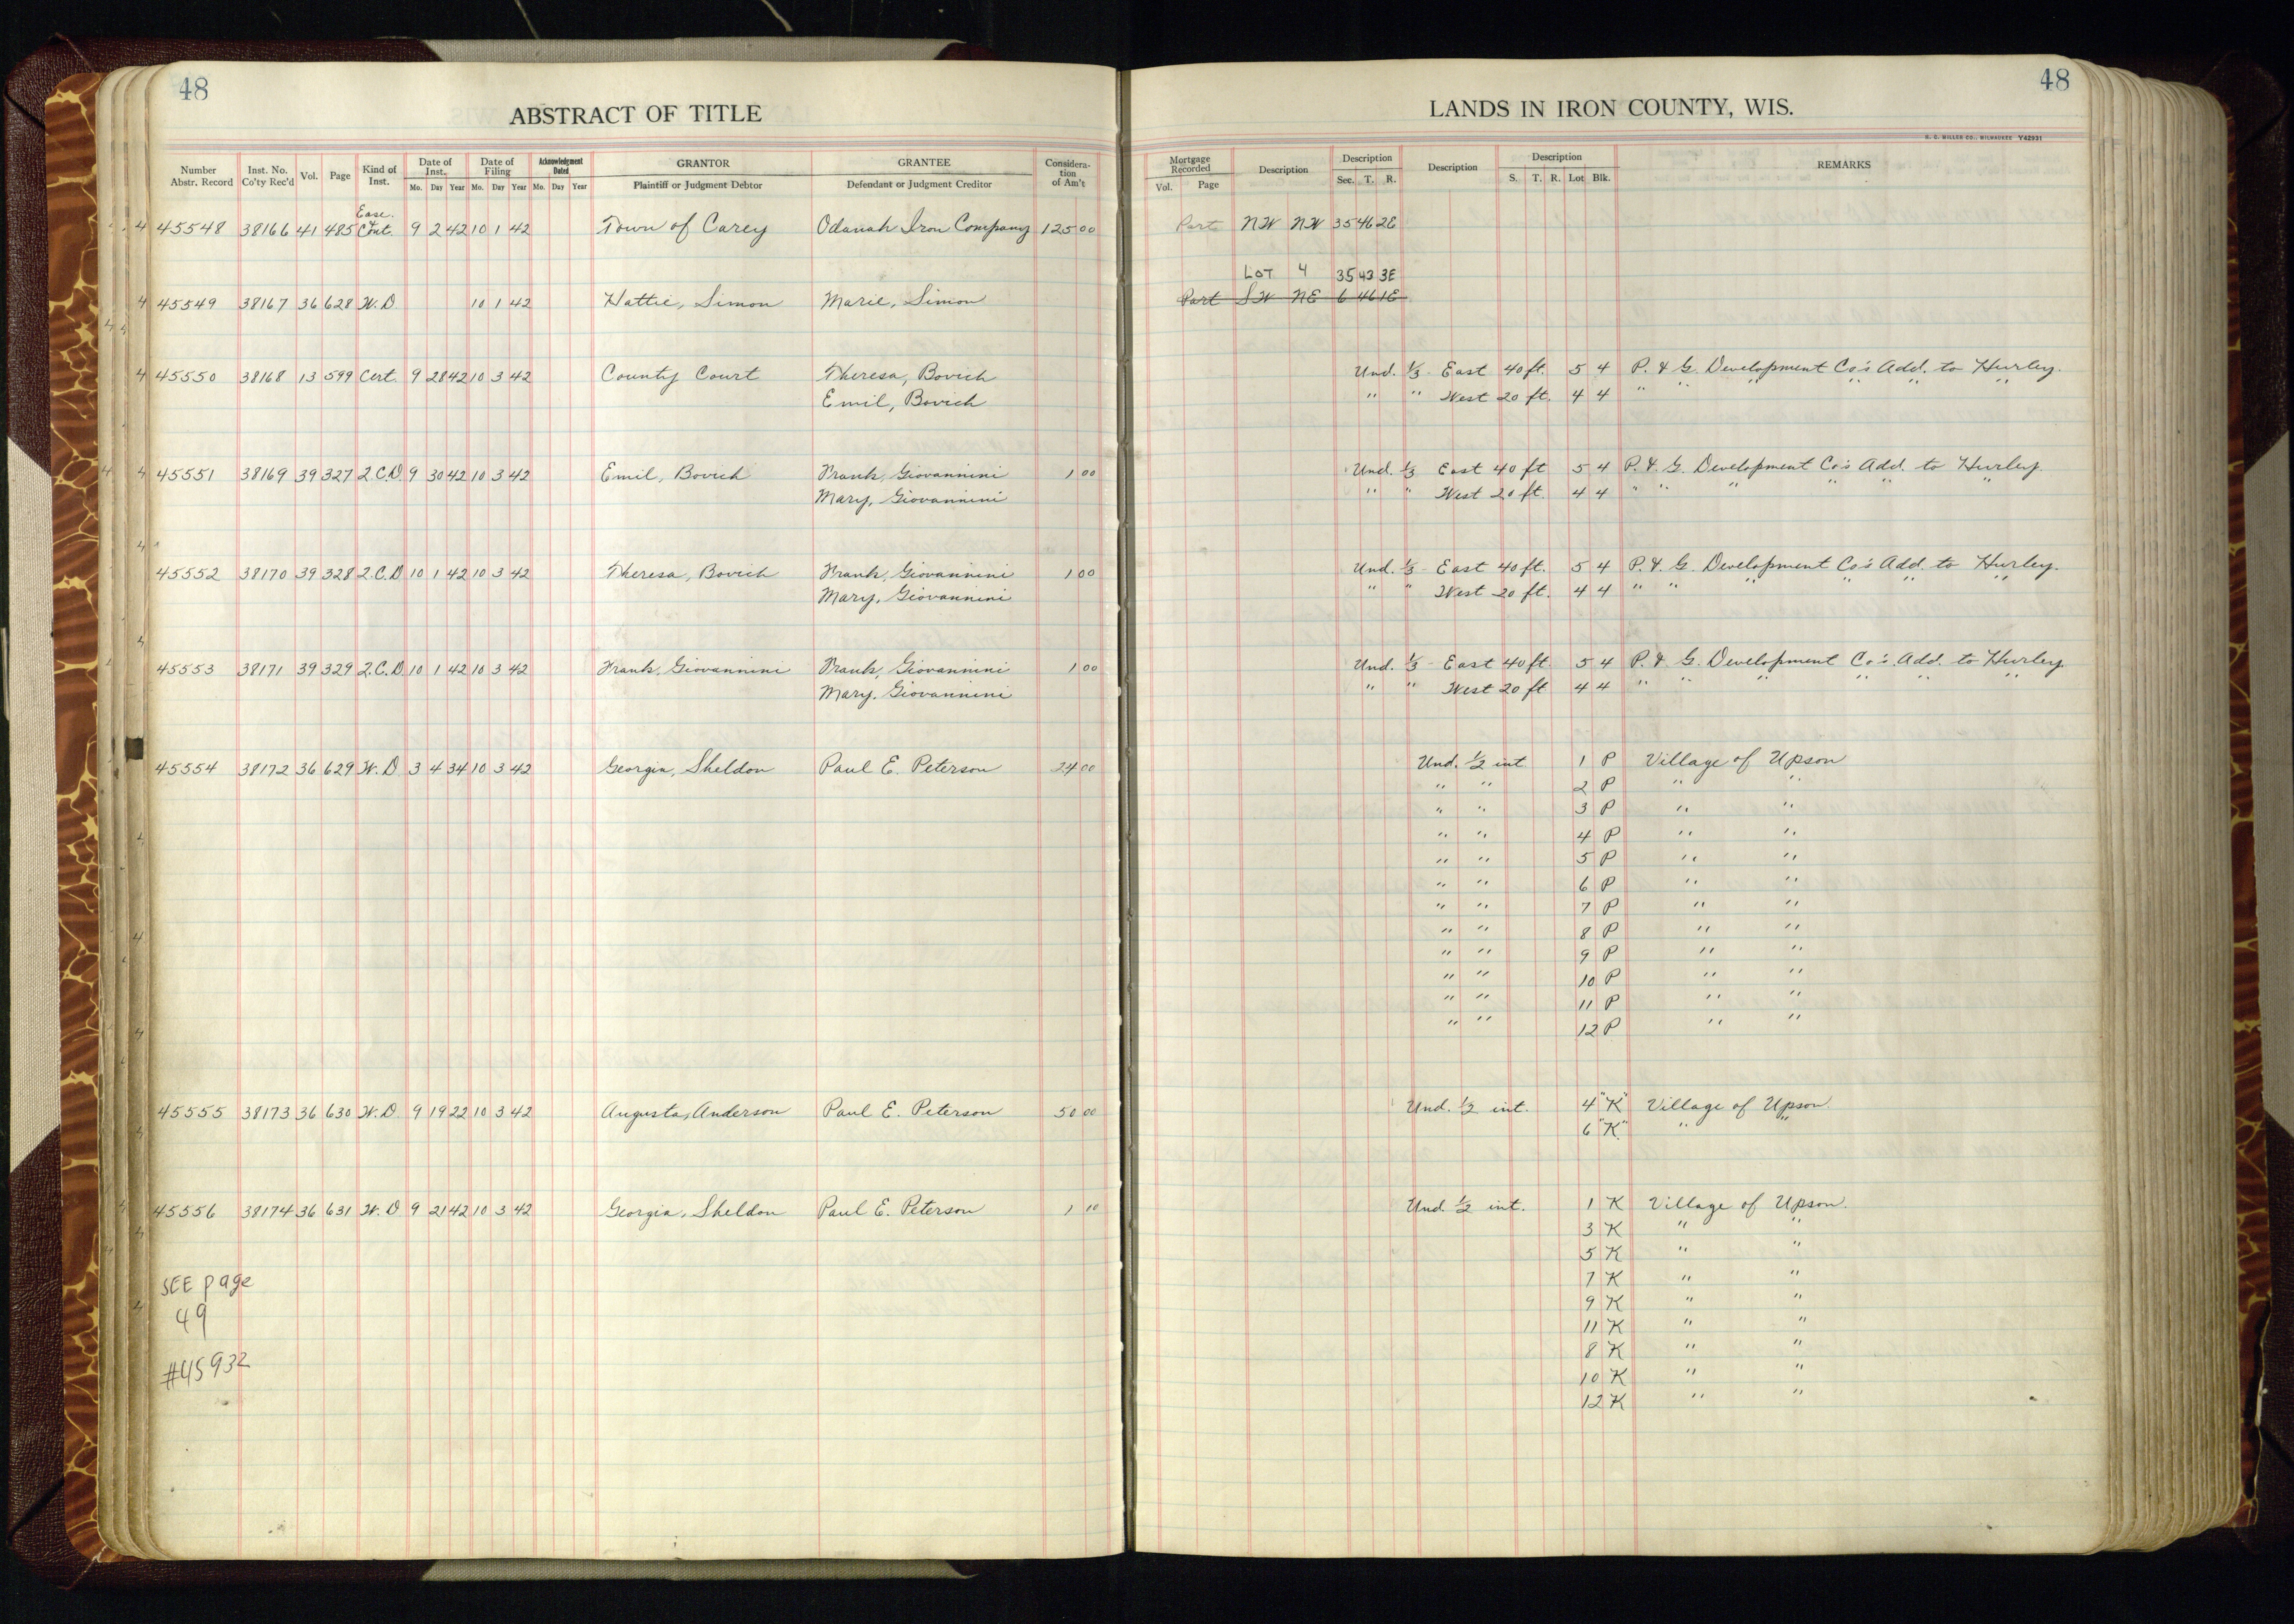 48
ABSTRACT OF TITLE
Number Abstr. Record Inst. No. Co'ty Rec'd Vol. Page Kind of Inst. Date of Inst. Mo. Day Year Date of Filing Mo. Day Year Acknowledgment Dated Mo. Day Year GRANTOR Plaintiff or Judgment Debtor GRANTEE Defendant or Judgment Creditor Considera-tion of Am't
Ease. &
45548 38166 41 485 Cont. 9 2 42 10 1 42 Town of Carey Odanah Iron Company 125 00
45549 38167 36 628 W.D. 10 1 42 Hattie, Simon Marie, Simon
45550 38168 13 599 Cert. 9 28 42 10 3 42 County Court Theresa, Bovich
Emil, Bovich
45551 38169 39 327 2.C.D. 9 30 42 10 3 42 Emil, Bovich Frank, Giovannini 1 00
Mary, Giovannini
45552 38170 39 328 2.C.D 10 1 42 10 3 42 Theresa, Bovich Frank, Giovannini 1 00
Mary, Giovannini
45553 38171 39 329 2.C.D. 10 1 42 10 3 42 Frank, Giovannini Frank, Giovannini 1 00
Mary, Giovannini
45554 38172 36 629 W.D. 3 4 34 10 3 42 Georgia, Sheldon Paul E. Peterson 24 00
45555 38173 36 630 W.D. 9 19 22 10 3 42 Augusta, Anderson Paul E. Peterson 50 00
45556 38174 36 631 W.D 9 21 42 10 3 42 Georgia, Sheldon Paul E. Peterson 1 10
SEE page
49
#45932
48
LANDS IN IRON COUNTY, WIS.
H. C. MILLER CO., MILWAUKEE Y42931
Mortgage Recorded Vol. Page Description Description Sec. T. R. Description Description S. T. R. Lot Blk. REMARKS
Part NW NW 35 46 2E
LOT 4 35 43 3E
Part SW NE 6 46 1E
Und. 1/3 East 40 ft. 5 4 P. & G. Development Co's Add. to Hurley.
" " West 20 ft. 4 4 " " " " " "
Und. 1/3 East 40 ft 5 4 P. & G. Development Co's Add. to Hurley.
" " West 20 ft. 4 4 " " " " " "
Und. 1/3 East 40 ft. 5 4 P. & G. Development Co's Add. to Hurley.
" " West 20 ft. 4 4 " " " " " "
Und. 1/3 East 40 ft. 5 4 P. & G. Development Co's. Add. to Hurley.
" " West 20 ft 4 4 " " " " " "
Und. 1/2 int 1 P Village of Upson
" " 2 P " "
" " 3 P " "
" " 4 P " "
" " 5 P " "
" " 6 P " "
" " 7 P " "
" " 8 P " "
" " 9 P " "
" " 10 P " "
" " 11 P " "
" " 12 P " "
Und. 1/2 int. 4 "K" Village of Upson.
6 "K" " "
Und. 1/2 int. 1 K Village of Upson.
3 K " "
5 K " "
7 K " "
9 K " "
11 K " "
8 K " "
10 K " "
12 K " "